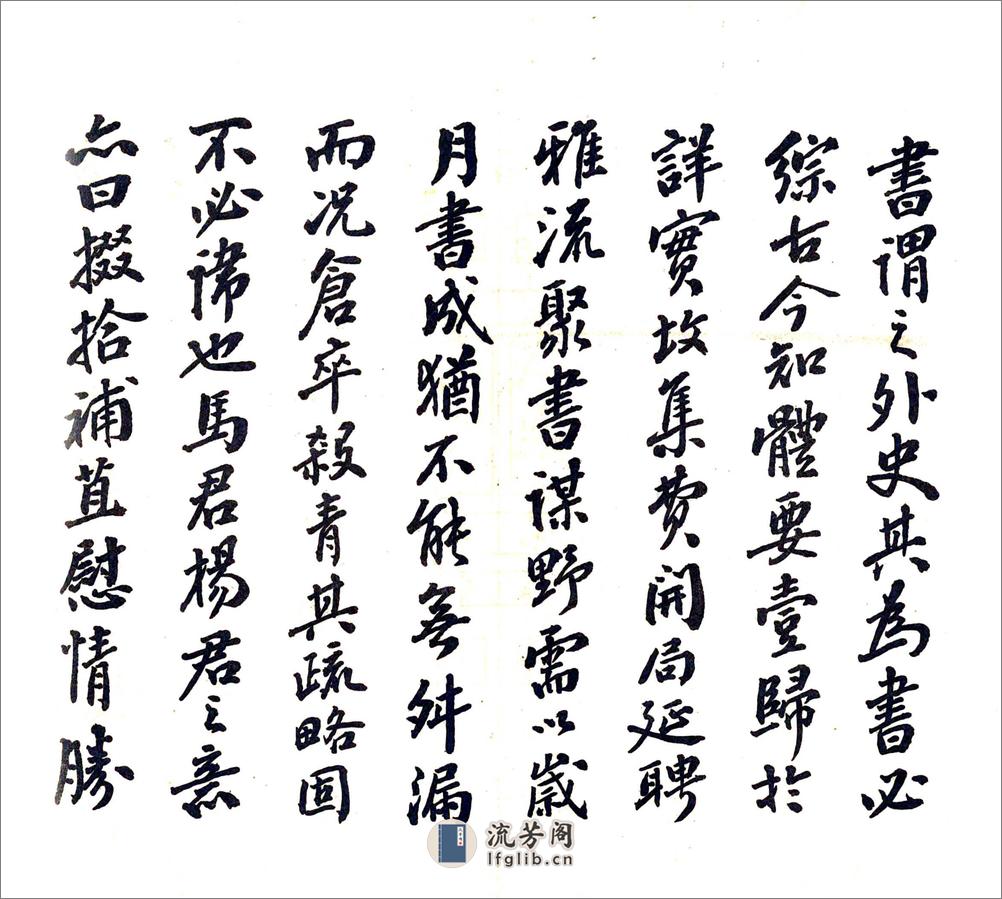 書謂之外史其為書必
綜古今知體要壹歸於
詳實故集費開局延聘
雅流聚書謀野需以歲
月書成猶不能無舛漏
而况倉卒殺青其疏略固
不必諱也馬君楊君之意
亦曰掇拾補苴慰情勝
流芳阁
lfglib.cn